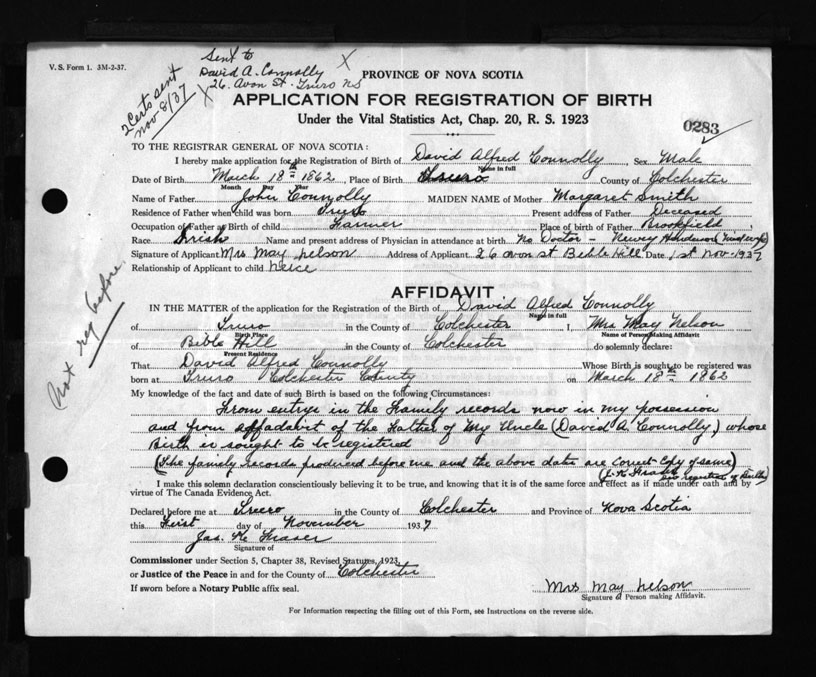 V. S. Form 1. 3M-2-37.
Sent to
David A. Connolly X
26. Avon St. Truro NS
X
2 Certs sent
Nov 8/37
PROVINCE OF NOVA SCOTIA
APPLICATION FOR REGISTRATION OF BIRTH
Under the Vital Statistics Act, Chap. 20, R. S. 1923
0283
TO THE REGISTRAR GENERAL OF NOVA SCOTIA:
I hereby make application for the Registration of Birth of David Alfred Connolly Sex Male
Name in full
Date of Birth March 18th 1862, Place of Birth Truro County of Colchester
Month Day Year
Name of Father John Connolly MAIDEN NAME of Mother Margaret Smith
Residence of Father when child was born Truro Present address of Father Deceased
Occupation of Father at Birth of child Farmer Place of birth of Father Brookfield
Race Irish Name and present address of Physician in attendance at birth No Doctor - Henderson (mid wife)
Signature of Applicant Mrs May Nelson Address of Applicant 26 avon st Bible Hill Date 1st Nov-1937
Relationship of Applicant to child Neice
Not reg before
AFFIDAVIT
IN THE MATTER of the application for the Registration of the Birth of David Alfred Connolly
Name in full
of Truro in the County of Colchester I, Mrs May Nelson
Birth Place Name of Person Making Affidavit
of Bible Hill in the County of Colchester do solemnly declare:
Present Residence
That David Alfred Connolly Whose Birth is sought to be registered was
born at Truro Colchester County on March 18th 1862
My knowledge of the fact and date of such Birth is based on the following Circumstances:
From entrys in the Family records now in my possession
and from affadabit of the Father of My Uncle (David A. Connolly,) whose
Birth is sought to be registered
(The family records produced before me and the above date are correct copy of same)
registrar of Births)
I make this solemn declaration conscientiously believing it to be true, and knowing that it is of the same force and effect as if made under oath and by
virtue of The Canada Evidence Act.
Declared before me at Truro in the County of Colchester and Province of Nova Scotia
this First day of November 1937
Jas. Mc Fraser
Signature of
Commissioner under Section 5, Chapter 38, Revised Statutes, 1923
or Justice of the Peace in and for the County of Colchester
If sworn before a Notary Public affix seal.
Mrs May Nelson
Signature of Person making Affidavit.
For Information respecting the filling out of this Form, see Instructions on the reverse side.